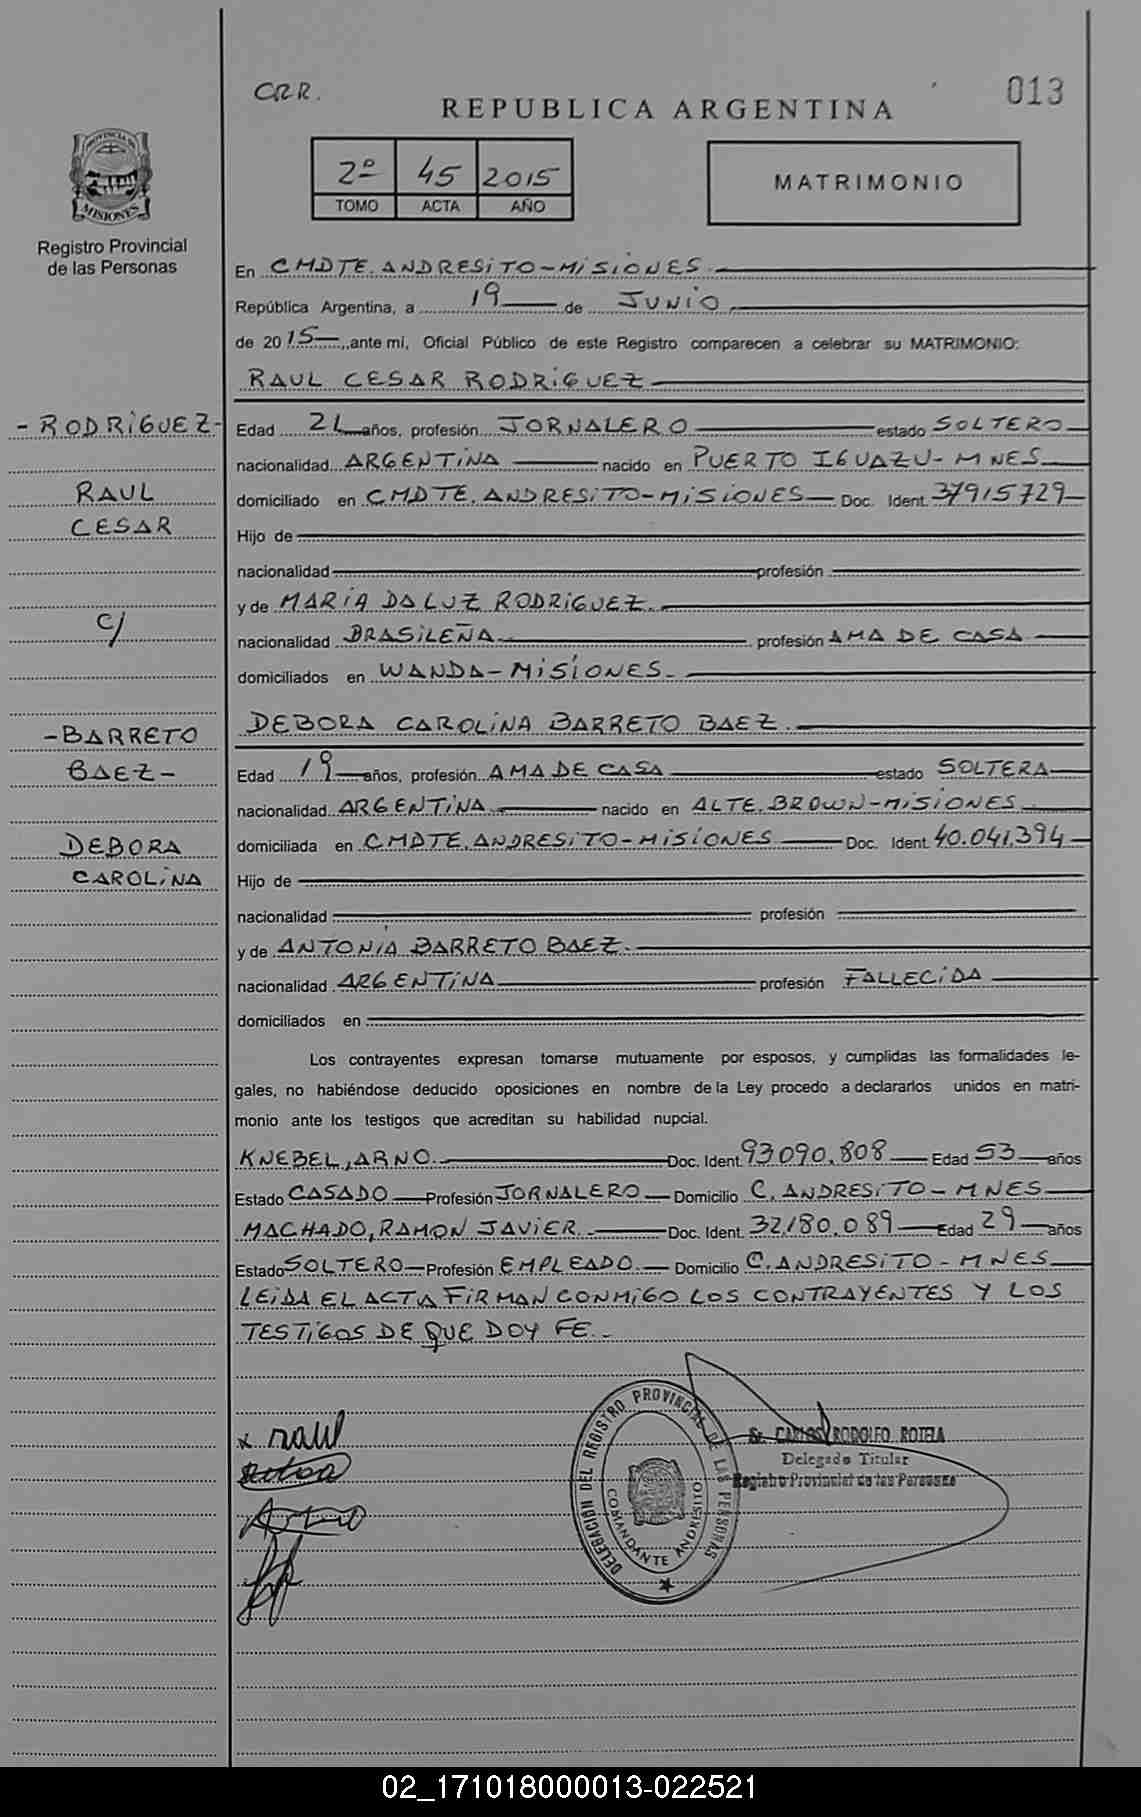 CRR.
013
REPUBLICA ARGENTINA
2º 45 2015
TOMO ACTA AÑO
MATRIMONIO
PROVINCIA DE
MISIONES
Registro Provincial
de las Personas
En CMDTE. ANDRESITO-MISIONES.
República Argentina, a 19 de JUNIO
de 2015, ante mí, Oficial Público de este Registro comparecen a celebrar su MATRIMONIO:
RAUL CESAR RODRIGUEZ
-RODRIGUEZ-
RAUL
CESAR
C/
-BARRETO
BAEZ-
DEBORA
CAROLINA
Edad 21 años, profesión JORNALERO estado SOLTERO
nacionalidad ARGENTINA nacido en PUERTO IGUAZU-MNES
domiciliado en CMDTE. ANDRESITO-MISIONES Doc. Ident. 37915729
Hijo de
nacionalidad profesión
y de MARIA DA LUZ RODRIGUEZ.
nacionalidad BRASILEÑA profesión AMA DE CASA
domiciliados en WANDA-MISIONES.
DEBORA CAROLINA BARRETO BAEZ.
Edad 19 años, profesión AMA DE CASA estado SOLTERA
nacionalidad ARGENTINA nacido en ALTE. BROWN-MISIONES
domiciliada en CMDTE. ANDRESITO-MISIONES Doc. Ident. 40.041.394
Hijo de
nacionalidad profesión
y de ANTONIA BARRETO BAEZ.
nacionalidad ARGENTINA profesión FALLECIDA
domiciliados en
Los contrayentes expresan tomarse mutuamente por esposos, y cumplidas las formalidades le-
gales, no habiéndose deducido oposiciones en nombre de la Ley procedo a declararlos unidos en matri-
monio ante los testigos que acreditan su habilidad nupcial.
KNEBEL, ARNO. Doc. Ident. 93090.808 Edad 53 años
Estado CASADO Profesión JORNALERO Domicilio C. ANDRESITO-MNES
MACHADO, RAMON JAVIER. Doc. Ident. 32.180.089 Edad 29 años
Estado SOLTERO Profesión EMPLEADO. Domicilio C. ANDRESITO-MNES
LEIDA EL ACTA FIRMAN CONMIGO LOS CONTRAYENTES Y LOS
TESTIGOS DE QUE DOY FE.
x raul
DELEGACION DEL REGISTRO PROVINCIAL DE LAS PERSONAS
COMANDANTE ANDRESITO
Sr. CARLOS RODOLFO ROTELA
Delegado Titular
Registro Provincial de las Personas
02_171018000013-022521